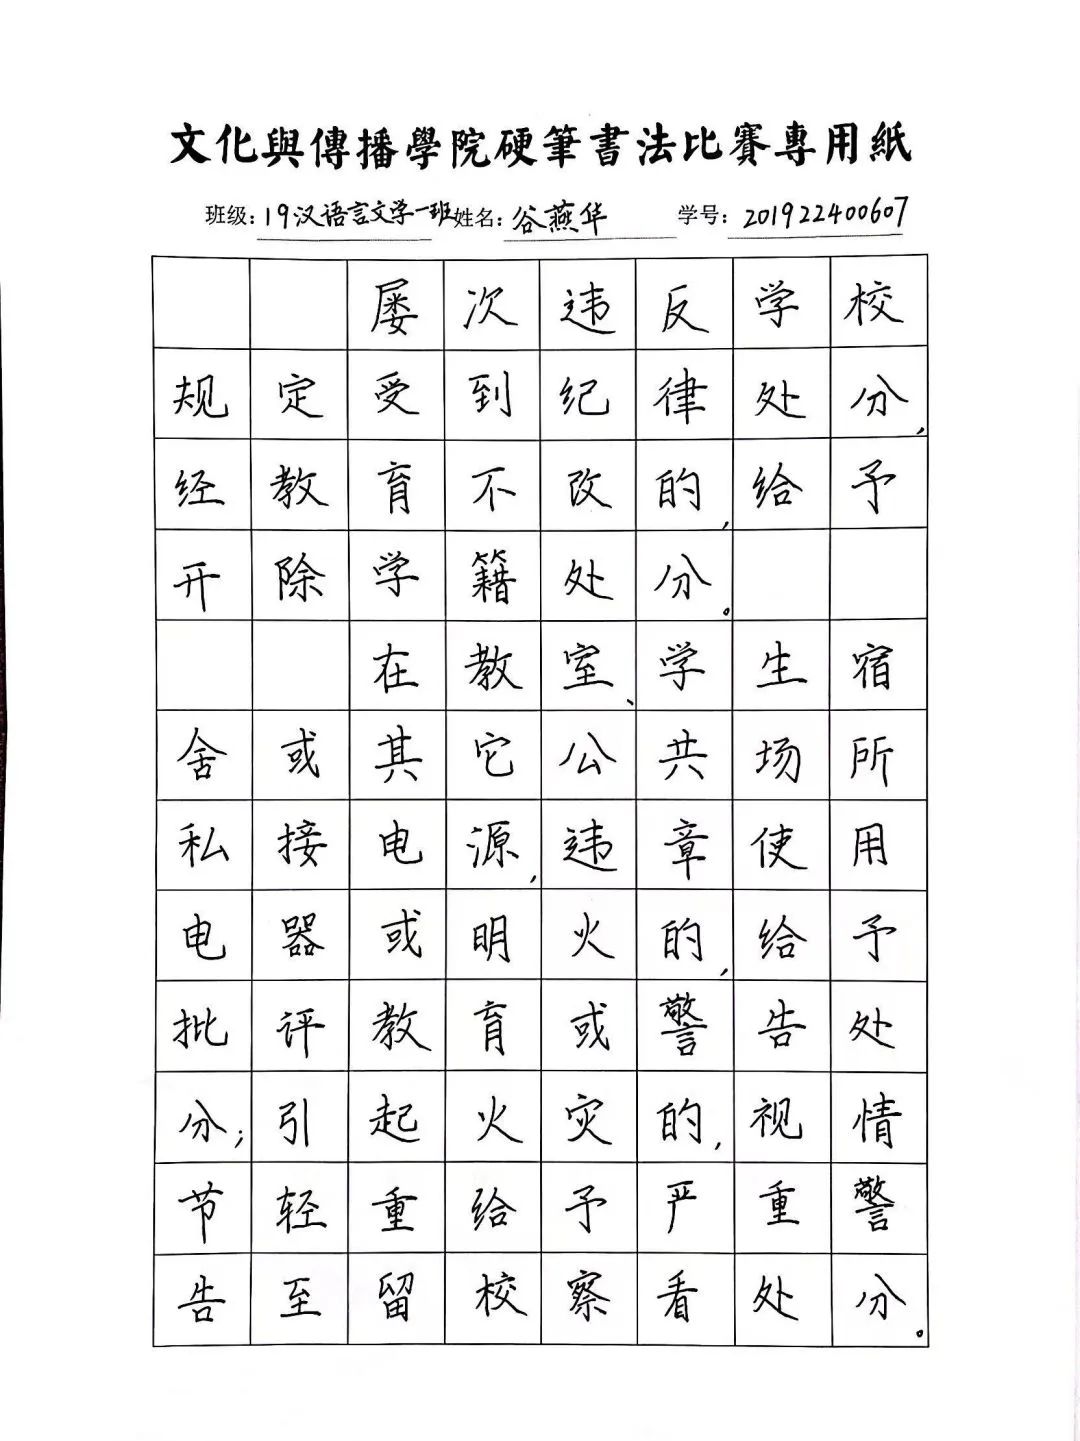 文化與傳播學院硬筆書法比賽專用紙
班级:19汉语言文学一班姓名:谷燕华 学号:201922400607
屡次违反学校
规定受到纪律处分,
经教育不改的,给予
开除学籍处分。
在教室、学生宿
舍或其它公共场所
私接电源,违章使用
电器或明火的,给予
批评教育或警告处
分;引起火灾的,视情
节轻重给予严重警
告至留校察看处分。